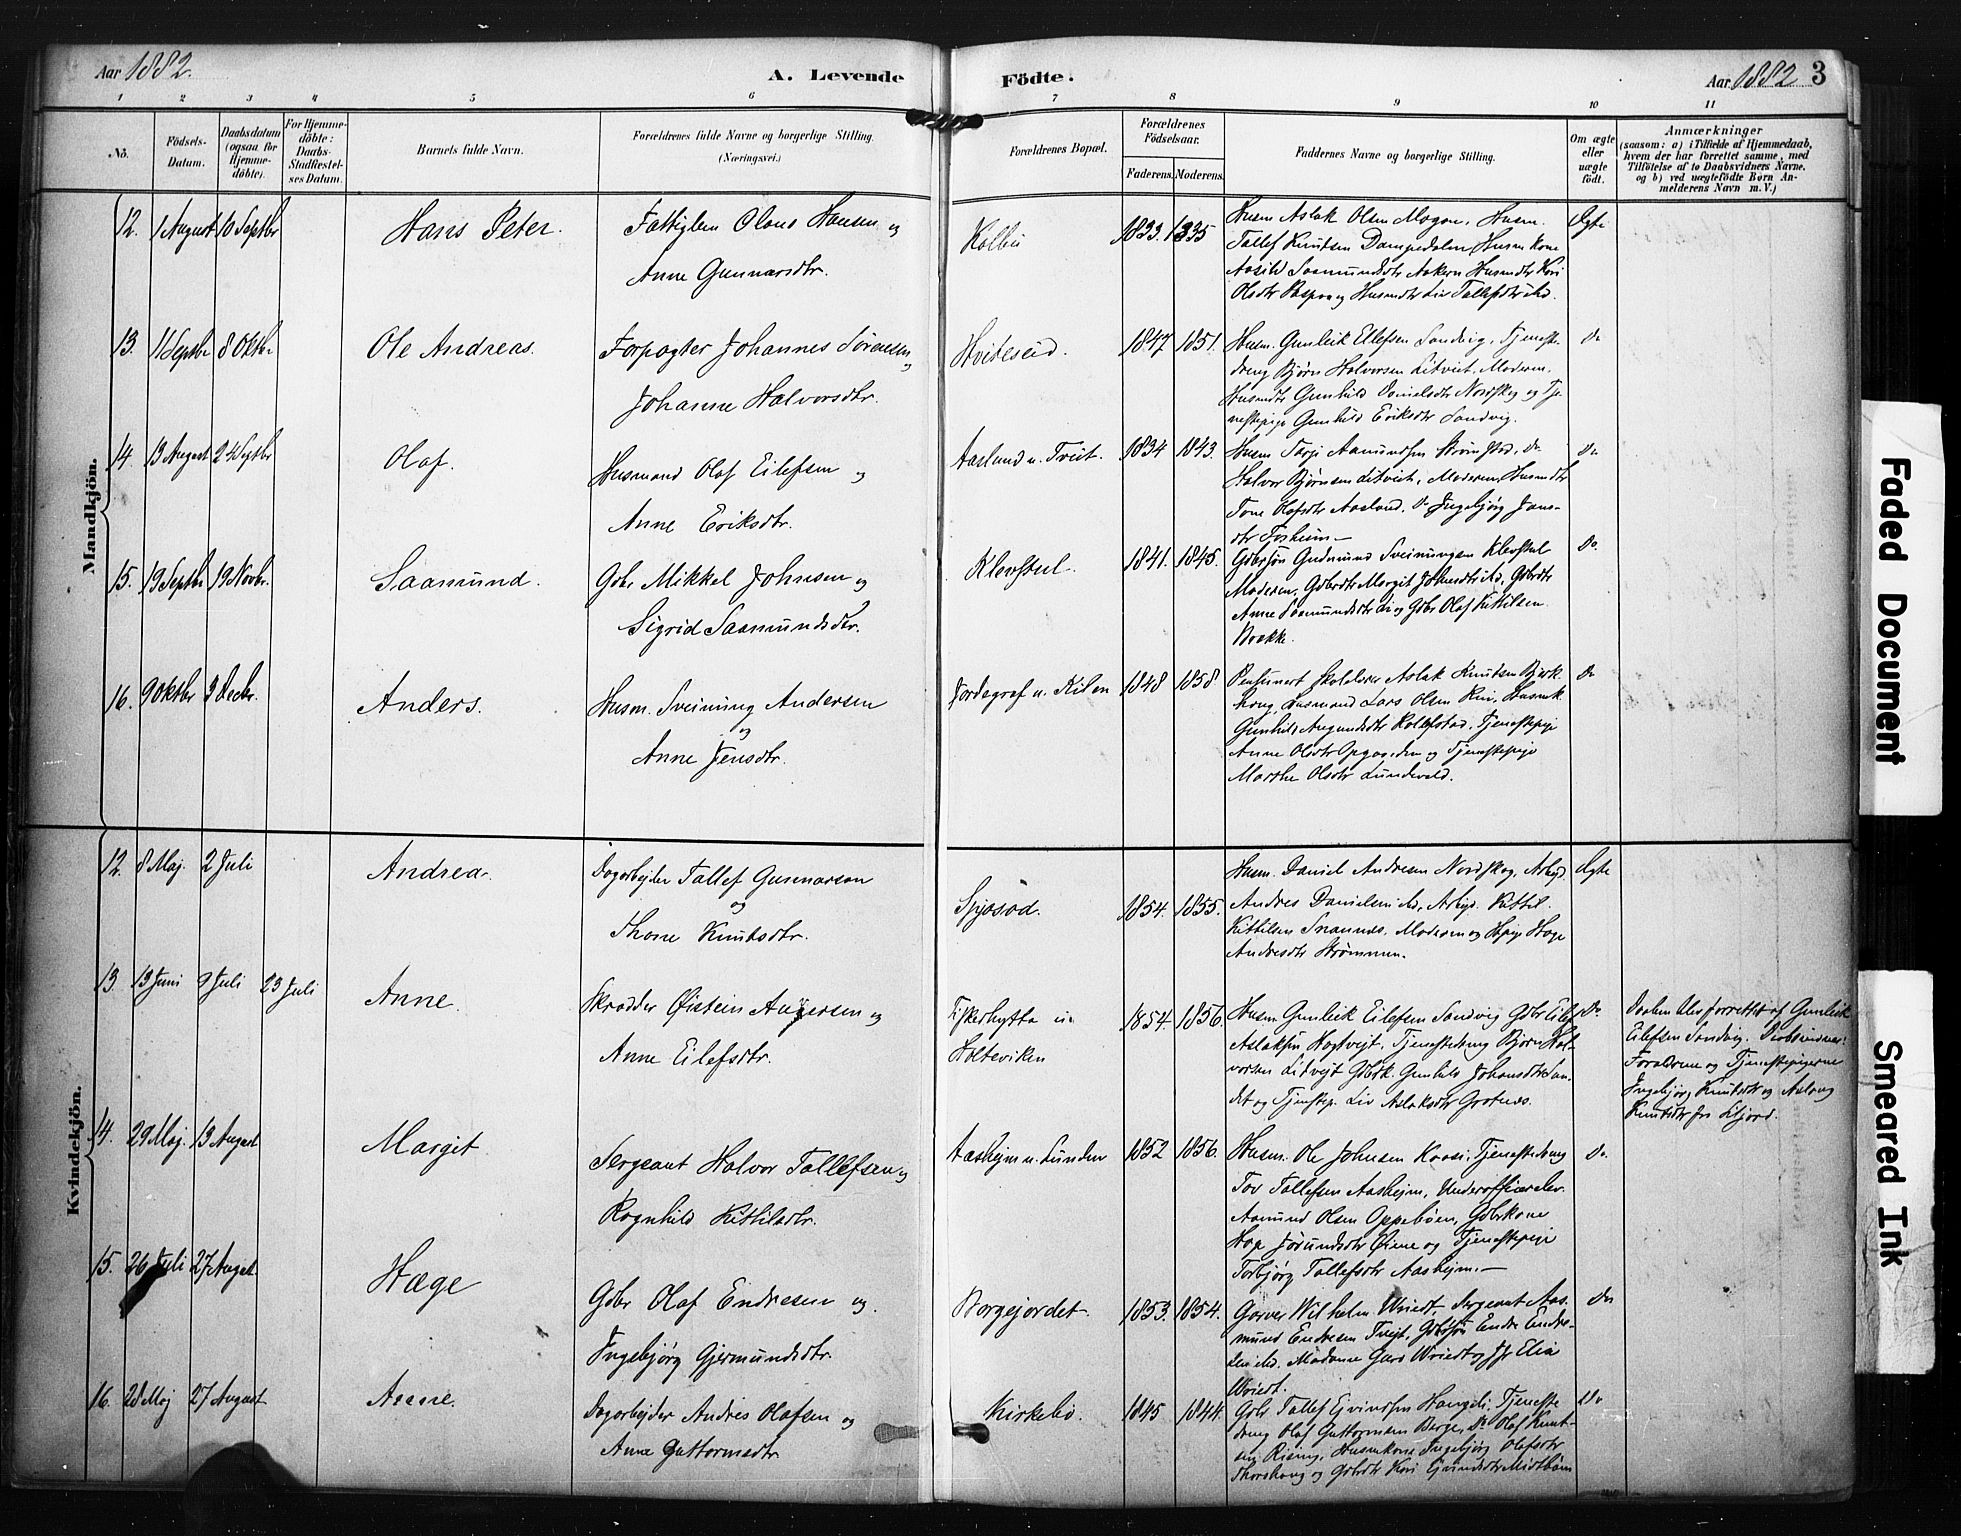 Aar 1882.
A. Levende
Födte.
Aar 1882
3
1 2 3 4 5 6 7 8 9 10 11
No.
Födsels-
Datum.
Daabsdatum
(ogsaa for
Hjemme-
döbte).
For Hjemme-
döbte:
Daabs-
Stadfestel-
ses Datum.
Barnets fulde Navn.
Forældrenes fulde Navne og borgerlige Stilling.
(Næringsvei.)
Forældrenes Bopæl.
Forældrenes
Födselsaar.
Faderens.
Moderens.
Faddernes Navne og borgerlige Stilling.
Om ægte
eller
uægte
födt.
Anmærkninger
(saasom: a) i Tilfælde af Hjemmedaab,
hvem der har forrettet samme, med
Tilföielse af to Daabsvidners Navne.
og b) ved uægtefödte Børn An-
melderens Navn m. V.)
Mandkjön.
12. 1 August 10 Septbr Hans Peter.
Fattiglem Olaus Hansen og
Anne Gunnarsdtr.
Kolbu 1833. 1835
Husm Aslak Olsen Mogen, Husm.
Tallef Knutsen Dampedalen Husmkone
Aasild Saamundsdtr Aakern Husmdtr Kari
Ægte
13. 11 Septbr 8 Oktbr Ole Andreas.
Forpagter Johannes Sørensen
og
Johanne Halvorsdtr.
Hviteseid. 1847 1851.
Husm. Gunleik Ellefsen Sandvig, Tjeneste-
dreng Bjørn Halvorsen Litveit. Moderen.
Husmdtr Gunhild Danielsdtr Nordskog og Tje-
nestepige Gunhild Eriksdtr Sandvig.
Do
14. 13 August 24 Septbr Olaf.
Husmand Olaf Eilefsen og
Anne Eriksdtr.
Aasland u. Treit. 1834 1843.
Husm Tarje Aamundsen Strømstad, do
Halvor Bjørnsen Litveit, Moderen, Husmdtr
Tone Olafsdtr Aasland. Do Ingebjørg Jans-
dtr
Do
15. 13 Septbr 19 Novbr. Saamund.
Gbr Mikkel Johnsen og
Sigrid Saamundsdtr.
Klevstul. 1841. 1845.
Gbrsøn Gudmund Sveinungsen Klevstul
Moderen, Gbrdtr Margit Johnsdtr ibd, Gbrdtr
Anne Saamundsdtr Li og Gbr Olaf Kittilsen
Brække.
Do.
16. 9 Oktbr 3 Decbr. Anders.
Husm. Sveinung Andersen
og
Anne Jensdtr.
Jordegraf u. Kilen 1848 1858
Pensionert Skolelærer Aslak Knutsen Bjerk
haug, Husmand Lars Olsen Rui, Husmk.
Gunhild Aagundsdtr Rollefstad, Tjenestepige
Anne Olsdtr Opgaarden og Tjenestepige
Marthe Olsdtr Lundevald.
Do
Kvindekjön.
12. 8 Maj. 2 Juli Andrea.
Dagarbejder Tallef Gunnarson
og
Thone Knutsdtr.
Spjosod. 1854. 1855.
Husm. Daniel Andresen Nordskog, Arbejd.
Andres Danielsen ibd, Arbejd. Kittil
Kittilsen Snannes. Moderen og Pige Hæge
Andresdtr Strømmen.
Ægte
13. 13 Juni 9 Juli 23 Juli Anne.
Skrædder Øistein Augersen og
Anne Eilefsdtr.
Fiskerhytta u.
Holteviken
1854. 1856.
Husm Gunleik Eilefsen Sandvig Gbr Eilef
Aslaksen Hogtvejt, Tjenestedreng Bjørn Hal-
vorsen Litvejt Gbrk. Gunhild Johansdtr San-
det og Tjenstep. Liv Aslaksdtr Grotnes.
Do.
Daaben blev forrettet af Gunleik
Eilefsen Sandvig. Daabsvidner:
Forældrene og Tjenestepigerne
Ingebjørg Knutsdtr og Aslaug
Knutsdtr fra Lifjord.
14. 29 Maj. 13 August Margit.
Sergeant Halvor Tallefsen og
Ragnhild Kittilsdtr.
Aashejm u. Lunden 1852 1856.
Husm. Ole Johnsen Kaasi, Tjenestedreng
Tov Tallefsen Aashejm, Underofficerelev.
Aamund Olsen Oppebøen, Gbrkone
Hæge Jørundsdtr Øiene og Tjenestepige
Torbjørg Tallefsdtr Aashejm.—
Do.
15. 26 Juli 27 August. Hæge
Gbr Olaf Endresen og.
Ingebjørg Gjermundsdtr.
Borgejordet. 1853. 1854.
Garver Wilhelm Wriedt, Sergeant Aas-
mund Endresen Tvejt, Gbrsøn Endre Endre-
sen ibd. Madame Gard Wriedt og Jfr Elia
Wriedt.
Do
16. 28 Maj 27 August Anne.
Dagarbejder Andres Olafsen og
Anne Guttormsdtr.
Kirkebø. 1845 1844.
Gbr Tallef Ejvindsen Haugeli, Tjeneste
dreng Olaf Guttormsen Berge, Do Olaf Knut-
sen Rising, Husmkone Ingebjørg Olafsdtr
Thorshaug og Gbrdtr Kari Ejvindsdtr Midtbøen
Do
Faded Document
Smeared Ink